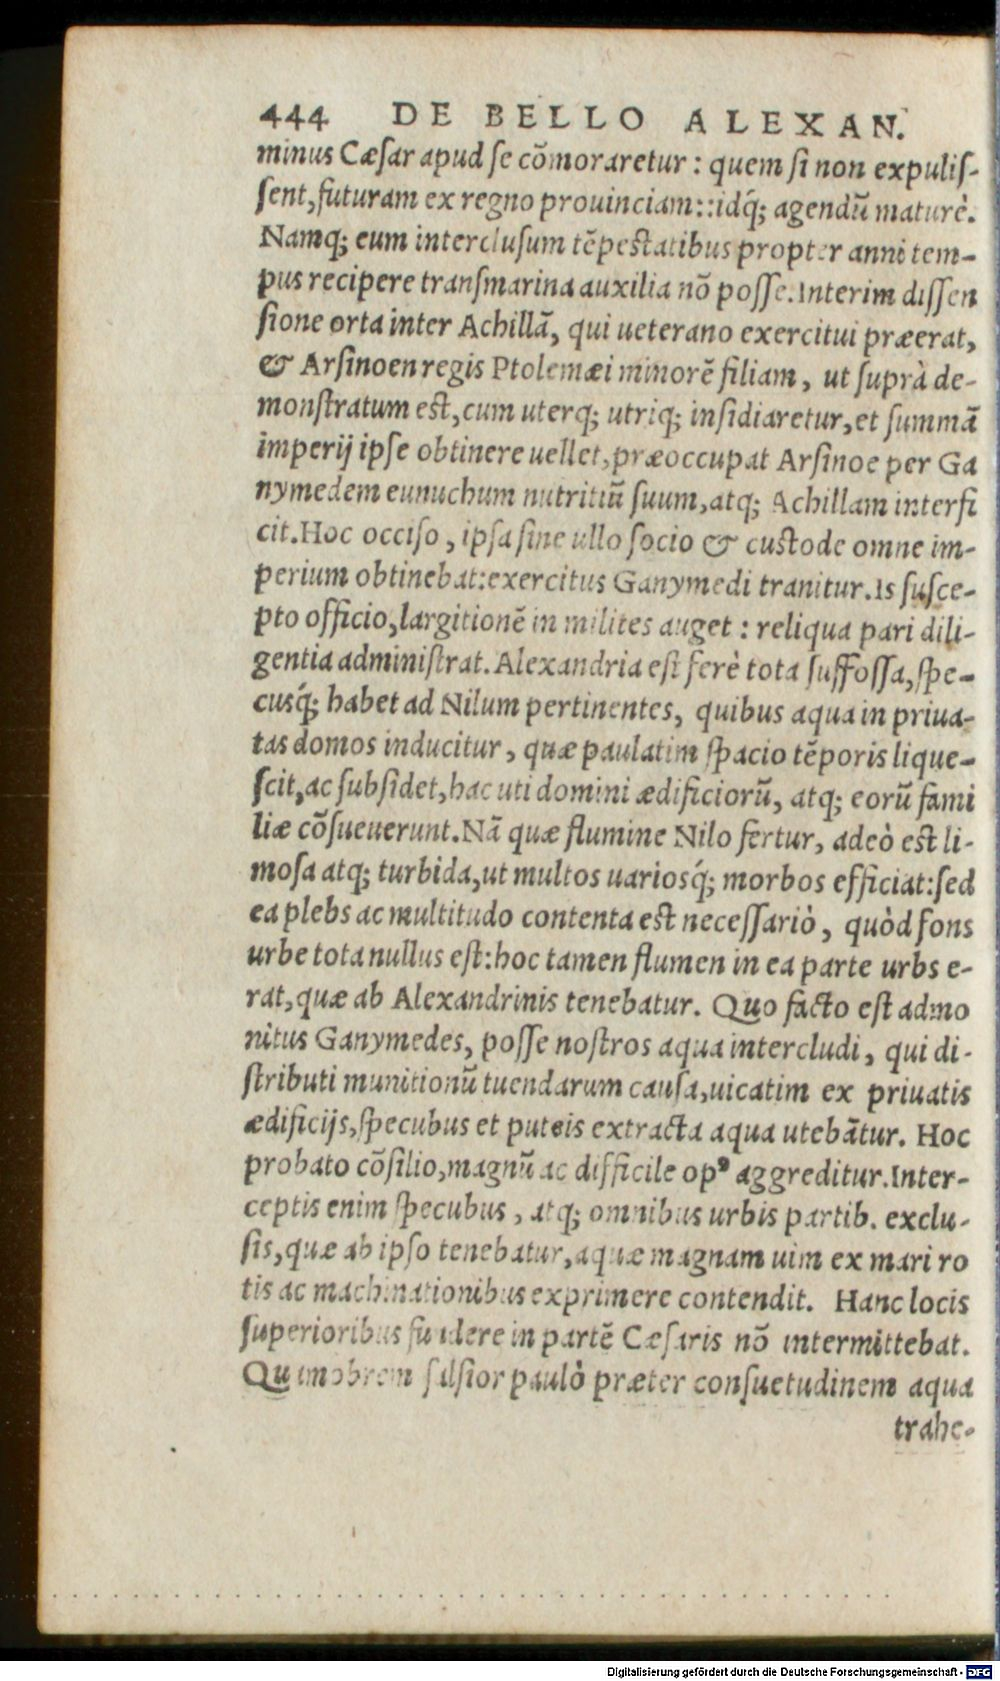 444 DE BELLO ALEXAN.
minus Cæſar apud ſe cõmoraretur : quem ſi non expuliſ-
ſent, futuram ex regno prouinciam::idq́; agendũ maturè.
Namq; eum interclusum tẽpeſtatibus propter anni tem-
pus recipere tranſmarina auxilia nõ poſſe. Interim diſſen
ſione orta inter Achillã, qui ueterano exercitui præerat,
& Arſinoen regis Ptolemæi minorẽ filiam, ut ſuprà de-
monſtratum eſt, cum uterq; utriq; inſidiaretur, et ſummã
imperij ipſe obtinere uellet, præoccupat Arſinoe per Ga
nymedem eunuchum nutritiũ ſuum, atq; Achillam interfi
cit. Hoc occiſo, ipſa ſine ullo ſocio & cuſtode omne im-
perium obtinebat:exercitus Ganymedi tranitur. Is ſuſce-
pto officio, largitionẽ in milites auget : reliqua pari dili-
gentia adminiſtrat. Alexandria eſt ferè tota ſuffoſſa, ſpe-
cusq́; habet ad Nilum pertinentes, quibus aqua in priua-
tas domos inducitur, quæ paulatim ſpacio tẽporis lique-
ſcit, ac ſubſidet, hac uti domini ædificiorũ, atq; eorũ fami
liæ cõſueuerunt. Nã quæ flumine Nilo fertur, adeò eſt li-
moſa atq; turbida, ut multos uariosq́; morbos efficiat:ſed
ea plebs ac multitudo contenta eſt neceſſariò, quòd fons
urbe tota nullus eſt:hoc tamen flumen in ea parte urbs e-
rat, quæ ab Alexandrinis tenebatur. Quo facto eſt admo
nitus Ganymedes, poſſe noſtros aqua intercludi, qui di-
ſtributi munitionũ tuendarum cauſa, uicatim ex priuatis
ædificijs, ſpecubus et puteis extracta aqua utebãtur. Hoc
probato cõſilio, magnũ ac difficile opꝰ aggreditur. Inter-
ceptis enim ſpecubus, atq; omnibus urbis partib. exclu-
ſis, quæ ab ipſo tenebatur, aquæ magnam uim ex mari ro
tis ac machinationibus exprimere contendit. Hanc locis
ſuperioribus fundere in partẽ Cæſaris nõ intermittebat.
Quamobrem ſalſior paulò præter conſuetudinem aqua
trahe-
Digitalisierung gefördert durch die Deutsche Forschungsgemeinschaft - DFG